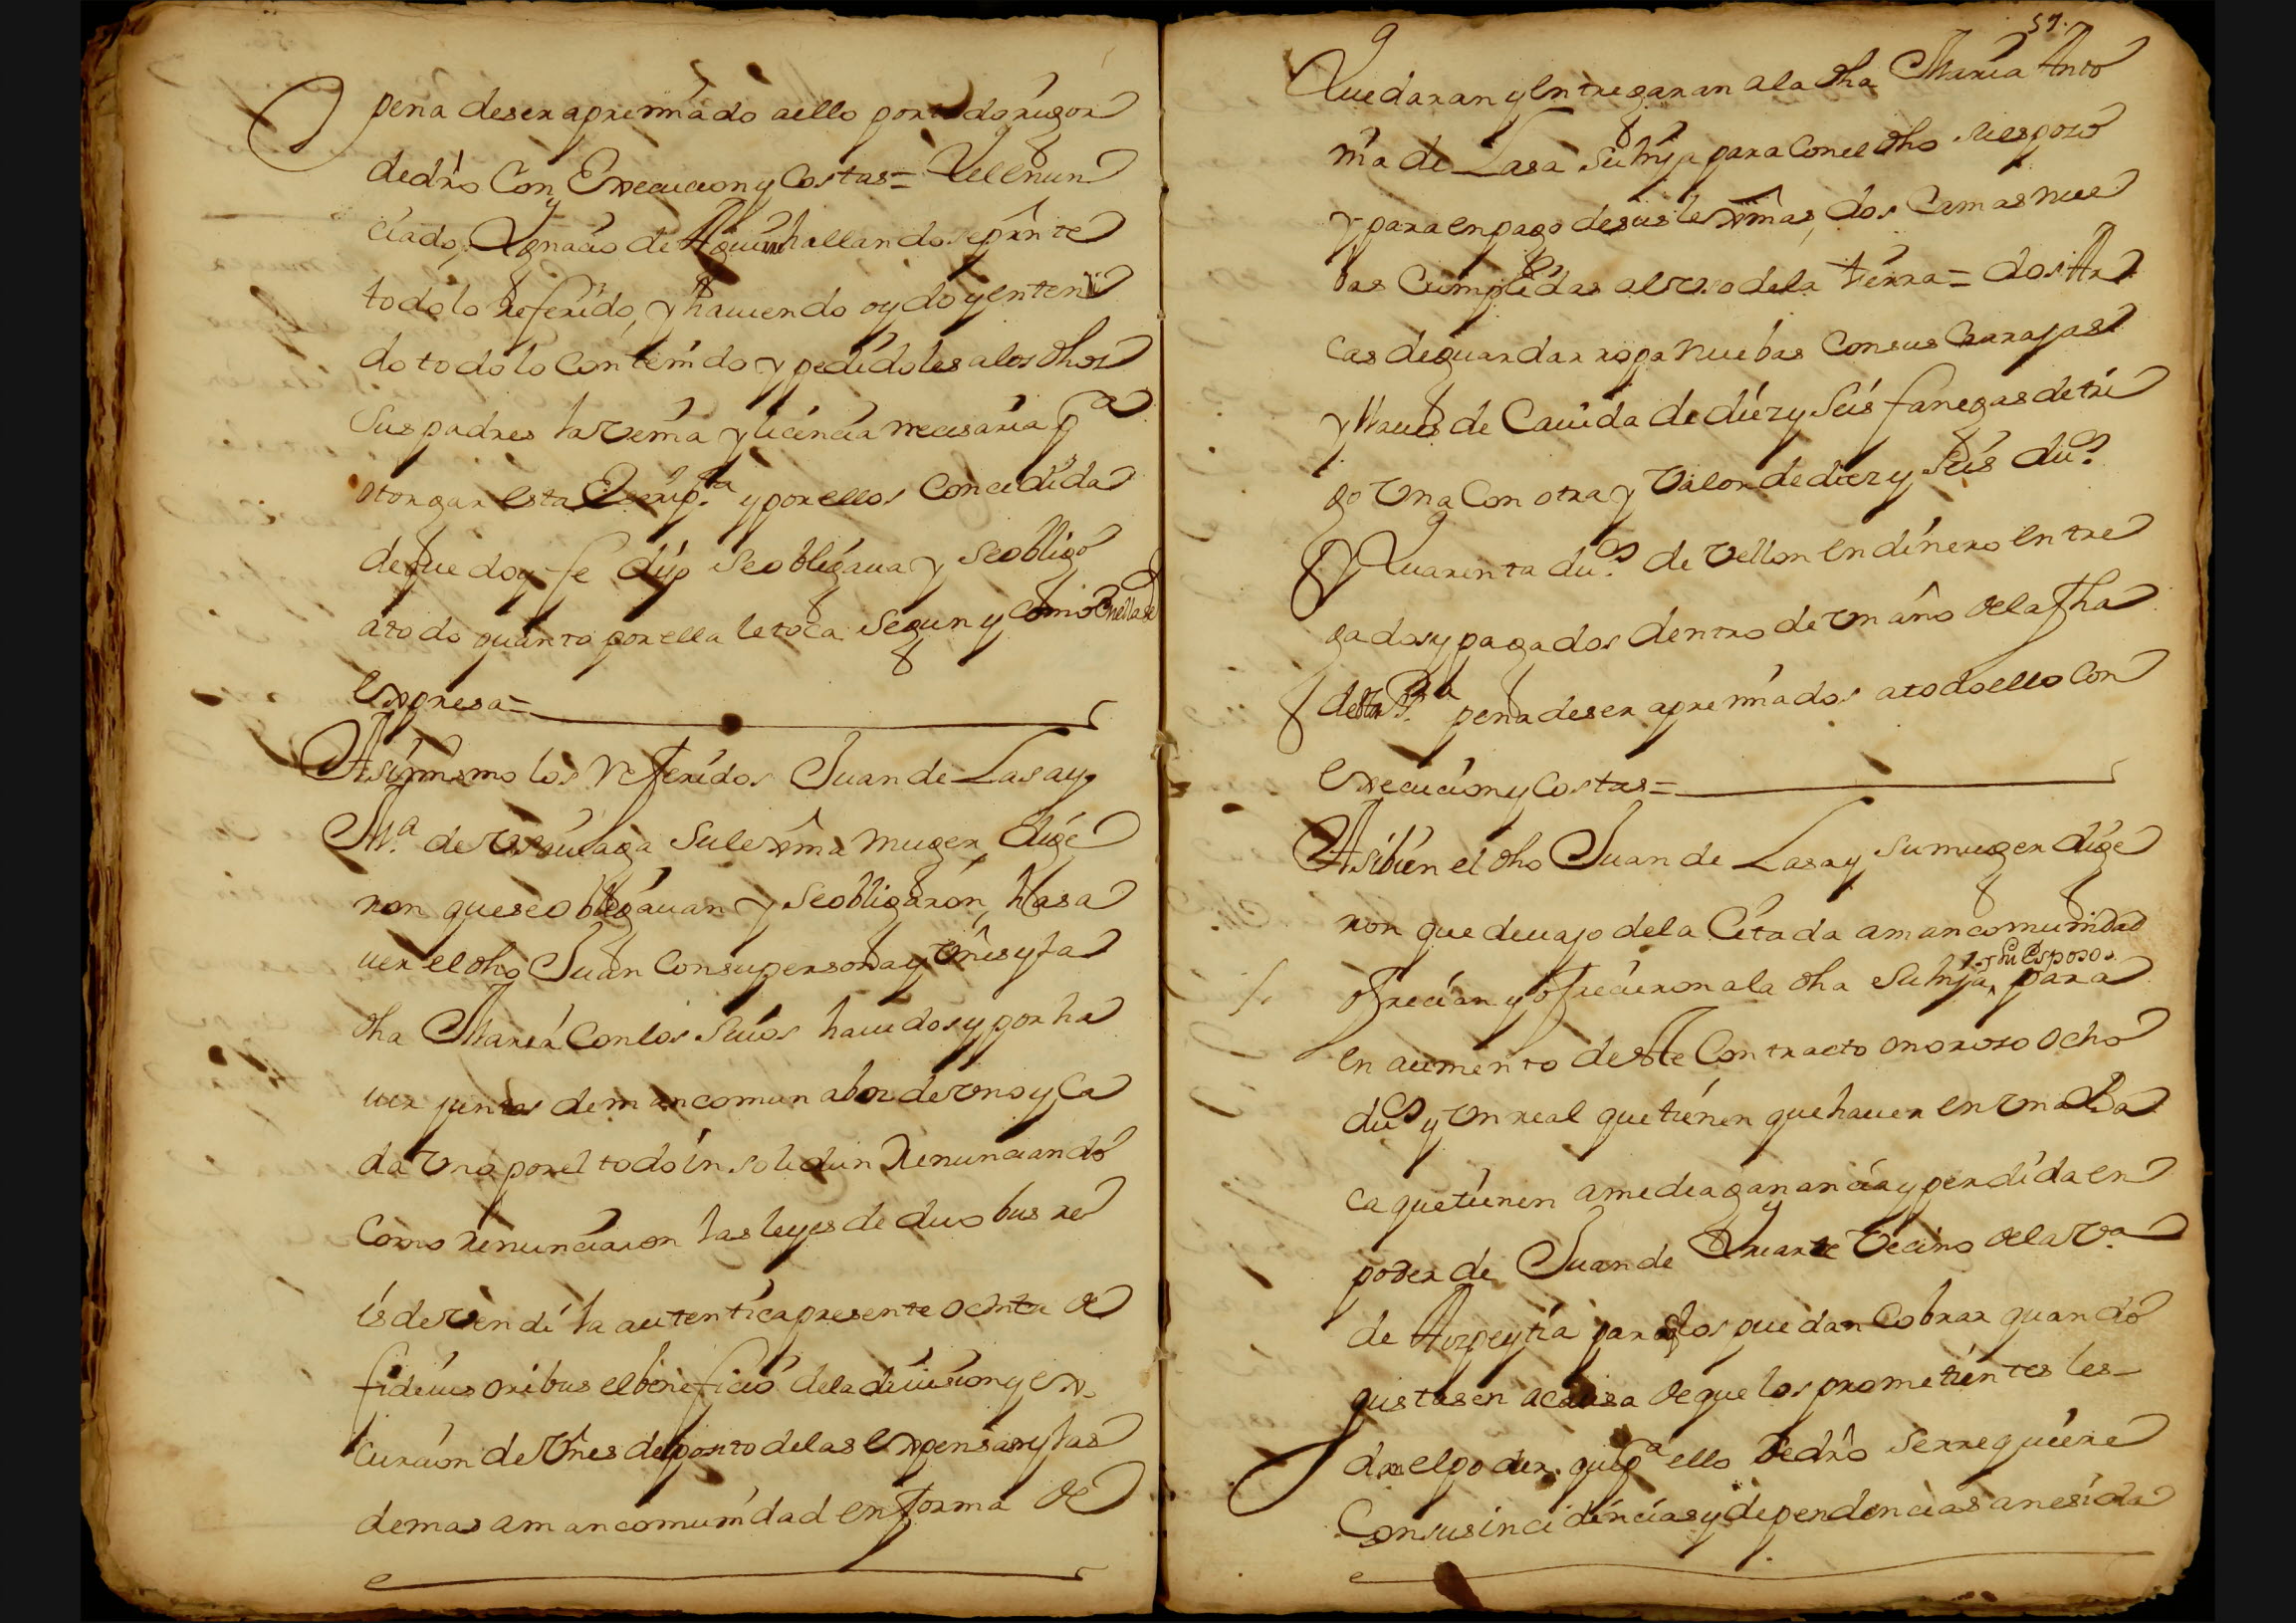 pena de ser apremiado a ello por todo rigor
de dro Con Execucion y Costas = Y el enun
ciado, Ygnacio de hallandose prnte
todo lo referido, y hauiendo oydo y enten
do todo lo Contenido y pedidoles a los dhos
Sus padres la Venia y licencia necesaria pa
otorgar esta Escripra y por ellos Concedida
de que doy fe dijo se obligaua y se obligo
a todo quanto por ella le toca Segun y Como en ella se
expresa =
Asimismo los referidos Juan de Lasa y
Ma de su lexma muger, dige
ron que se obligauan y se obligaron, es a sa
uer el dho Juan Con su persona y vnes y la
dha Maria Con los Suios hauidos y por ha
uer juntos de mancomun a boz de vno y Ca
da Vno por el todo in solidun Renunciando
Como Renunciaron las leyes de duobus re
is devendi la autentica presente ochita de
fideius oribus el beneficio de la diuision y ex
cursion de Vnes deposito de las expensas y las
demas a mancomunidad en forma de
57.
Quedaran y entregaran a la dha Maria Anto
nia de Lasa Su hija para Con el dho su esposo
y para en pago de sus lexmas, dos Camas nue
bas Cumplidas al vso de la tierra = dos Ar
cas de guardar ropa nuebas Con sus Zarajas
y llaues de Cauida de diez y Seis fanegas de tri
go Vna Con otra y Valor de diez y Seis dus.
Y Quarenta dus. de Vellon en dinero entre
gados y pagados dentro de Vn año de la fha
desta pena de ser apremiados a todo ello Con
execucion y Costas =
Asibien el dho Juan de Lasa y su muger dige
ron que deuajo de la Citada a mancomunidad
y su esposo
ofrecian y ofrecieron a la dha Su hija, para
en aumento deste Contracto onoroso ocho
dus y Vn real que tienen que hauer en Vna Ba
ca que tienen a media ganancia y perdida en
poder de Juan de Vriarte Vecino de la Va
de Azpeytia para los puedan Cobrar quando
gustasen a causa de que los prometientes les
dan el poder que pa ello de dro se requiere
Con sus incidencias y dependencias anesida